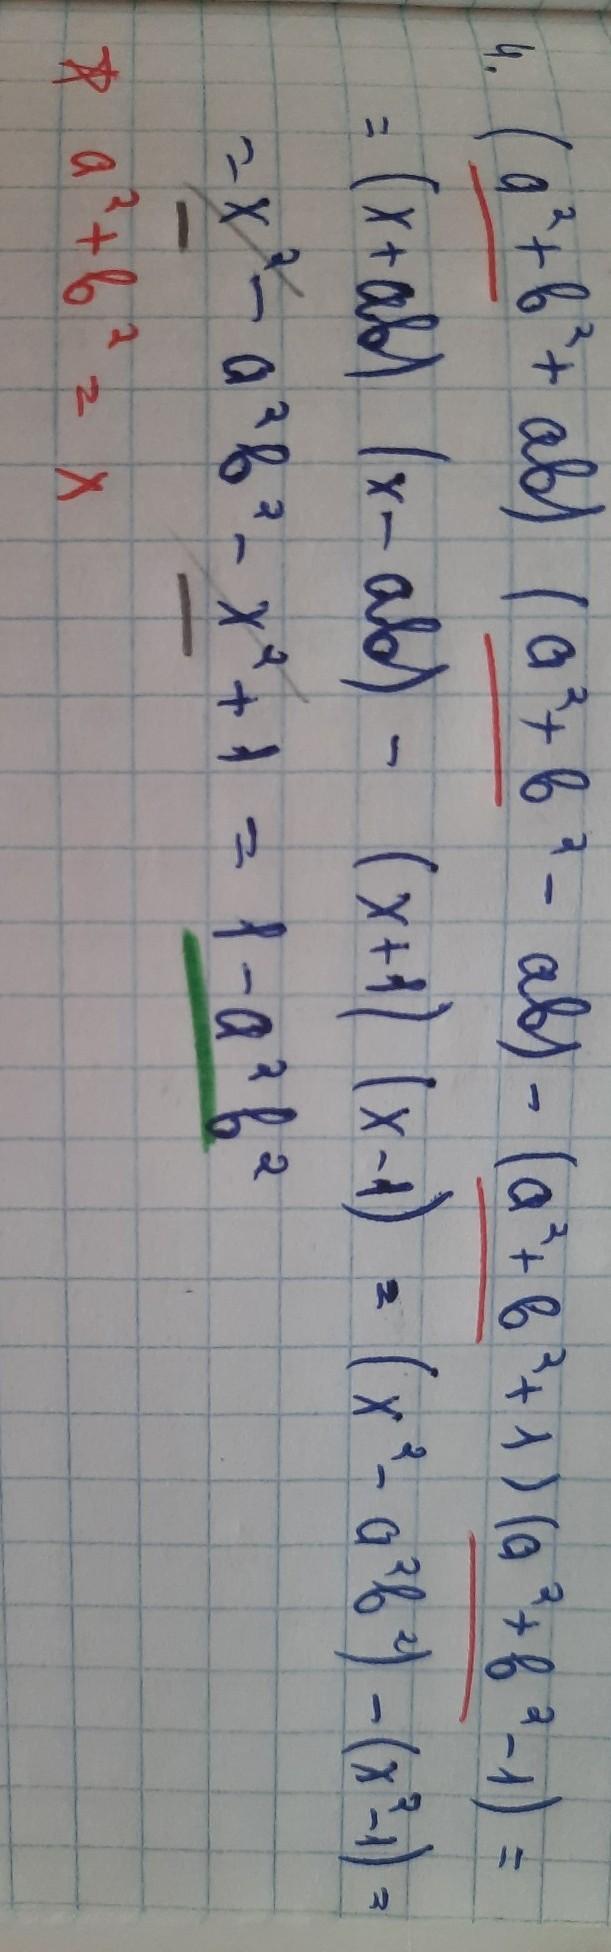 4. (a² + b² + ab) (a² + b² - ab) - (a² + b² + 1) (a² + b² - 1) =
= (x + ab) (x - ab) - (x + 1) (x - 1) = (x² - a²b²) - (x² - 1) =
= x² - a²b² - x² + 1 = 1 - a²b²
* a² + b² = x